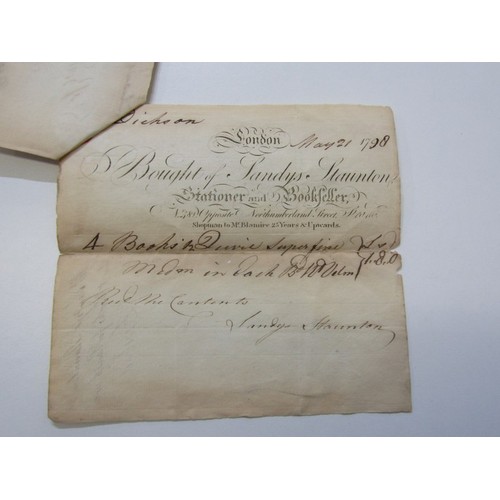 Dickson
London May 21 1798
Bought of Sandys Staunton
Stationer and Bookseller,
Opposite Northumberland Street
Shopman to Mr. Blamire 25 Years & Upwards.
4 Books Superfine
in
Recd the Contents
Sandys Staunton